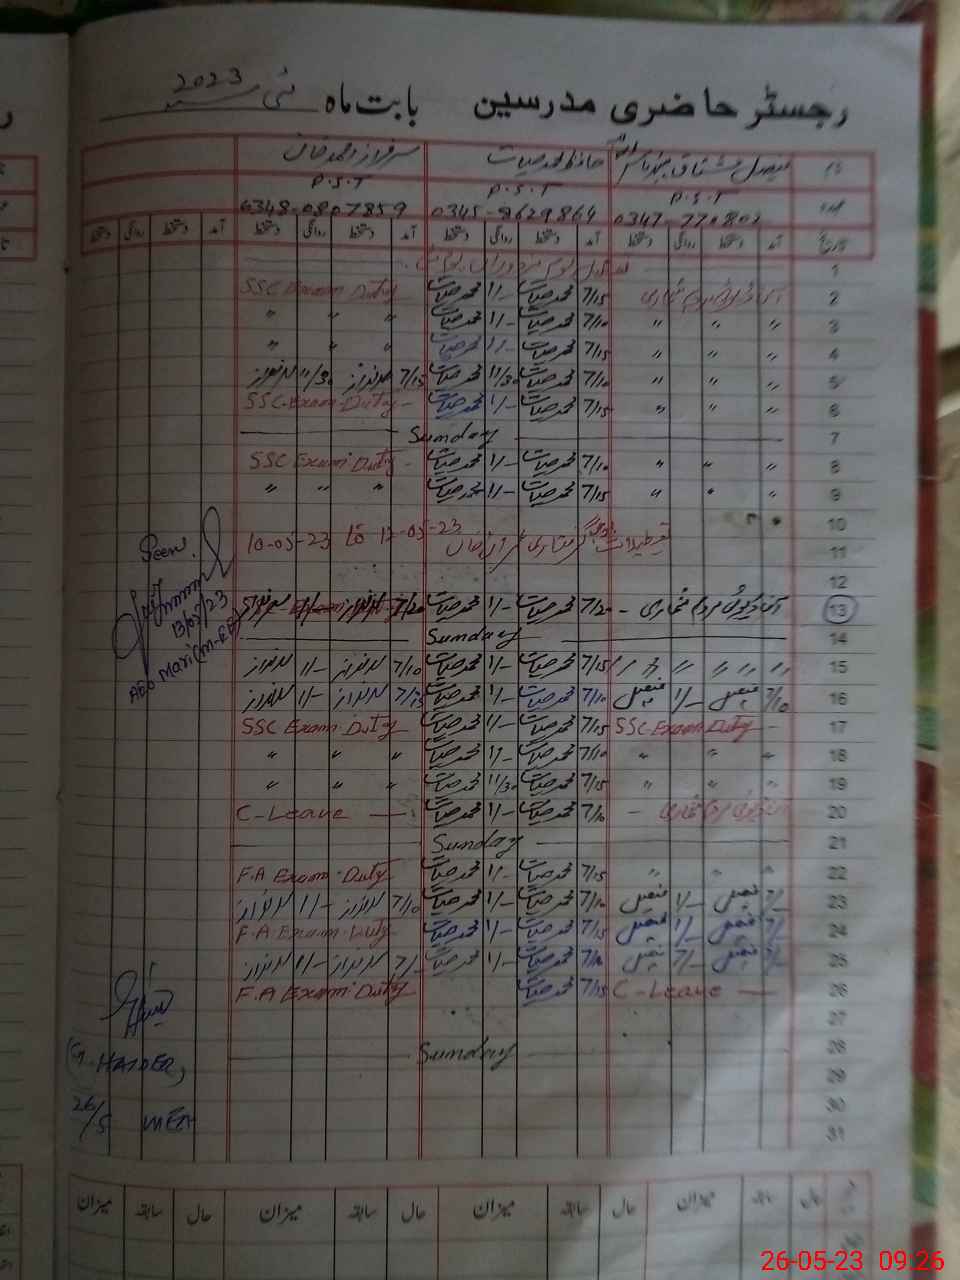 رجسٹر حاضری مدرسین بابت ماہ مئی 2023
نام فیصل مشتاق حافظ محمد حیات سرفراز احمد خان
عہدہ P.S.T P.S.T P.S.T
0345-9629864 0348-0807859
تاریخ آمد دستخط روانگی دستخط آمد دستخط روانگی دستخط آمد دستخط روانگی دستخط آمد دستخط روانگی دستخط
1
2 7/15 محمد حیات 1/- محمد حیات SSC Exam Duty
3 " " " 7/10 محمد حیات 1/- محمد حیات " " "
4 " " " 7/15 محمد حیات 1/- محمد حیات " " "
5 " " " 7/10 محمد حیات 11/30 محمد حیات 7/15 سرفراز 11/30 سرفراز
6 " " " 7/15 محمد حیات 1/- محمد حیات SSC Exam Duty -
7 Sunday
8 " " " 7/10 محمد حیات 1/- محمد حیات SSC Exam Duty -
9 " " " 7/15 محمد حیات 1/- محمد حیات " " "
10
11 تعطیلات گرفتاری عمران خان 10-05-23 تا 12-05-23
12
13 7/20 محمد حیات 1/- محمد حیات 7/20 سرفراز 1/- سرفراز
14 Sunday
15 " " " " 7/15 محمد حیات 1/- محمد حیات 7/10 سرفراز 1/- سرفراز
16 7/10 فیصل 1/- فیصل 7/10 محمد حیات 1/- محمد حیات 7/15 سرفراز 1/- سرفراز
17 SSC Exam Duty - 7/15 محمد حیات 1/- محمد حیات SSC Exam Duty
18 " " " 7/10 محمد حیات 1/- محمد حیات " " "
19 " " " 7/15 محمد حیات 11/30 محمد حیات " " "
20 7/10 محمد حیات 1/- محمد حیات C-Leave
21 Sunday
22 " " " 7/15 محمد حیات 1/- محمد حیات F.A Exam Duty
23 7/- فیصل 1/- فیصل 7/10 محمد حیات 1/- محمد حیات 7/10 سرفراز 1/- سرفراز
24 7/- فیصل 1/- فیصل 7/15 محمد حیات 1/- محمد حیات F.A Exam Duty
25 7/- فیصل 7/- فیصل 7/10 محمد حیات 1/- محمد حیات 7/- سرفراز 1/- سرفراز
26 C-Leave 7/15 محمد حیات F.A Exam Duty
27
28 Sunday
29
30
31
Seen.
13/05/23
AEO Mari (M-EE)
HAIDER,
26/5 MEA
حال سابقہ میزان حال سابقہ میزان حال سابقہ میزان حال سابقہ میزان
26-05-23 09:26